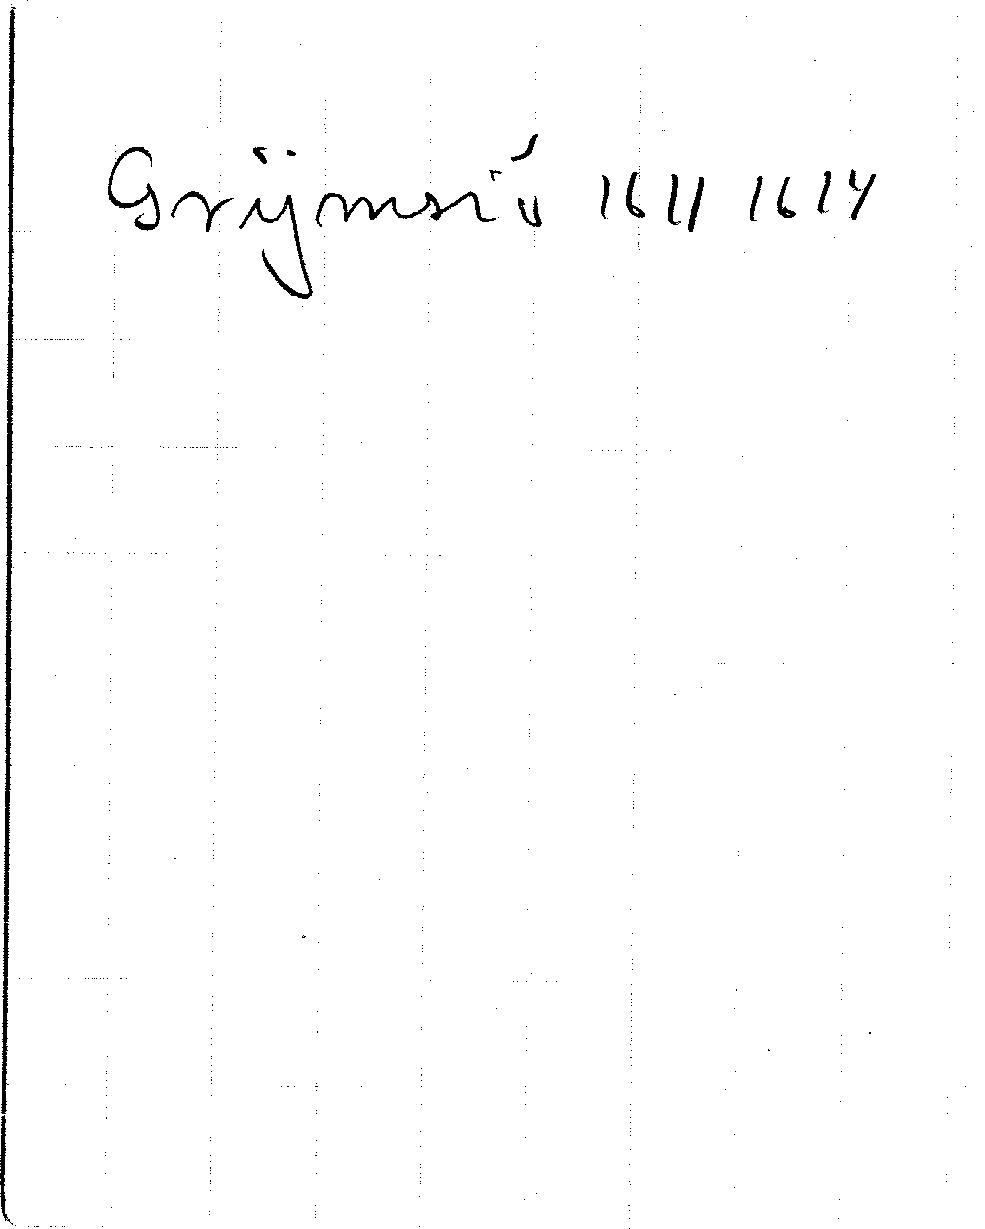 Grijmsiů 1611 1614